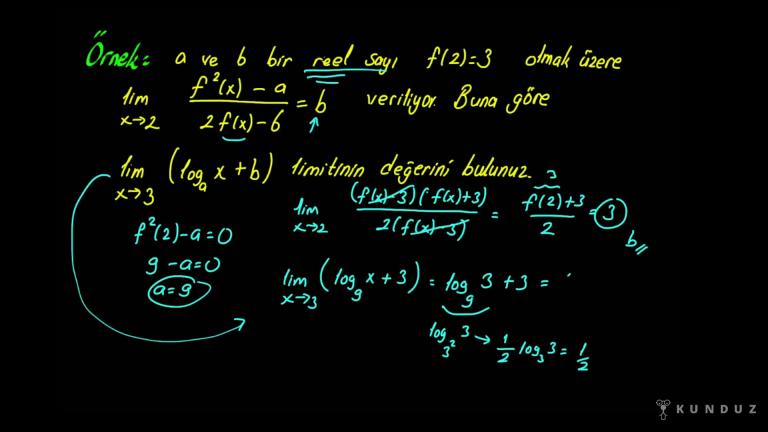 Örnek: a ve b bir reel sayı f(2)=3 olmak üzere
lim x→2 (f²(x) - a)/(2f(x) - 6) = b veriliyor. Buna göre
lim x→3 (log_a x + b) limitinin değerini bulunuz.
f²(2) - a = 0
9 - a = 0
a = 9
lim x→2 ((f(x) - 3)(f(x) + 3))/(2(f(x) - 3)) = (f(2) + 3)/2 = 3
3
b
lim x→3 (log_9 x + 3) = log_9 3 + 3 =
log_3² 3 → 1/2 log_3 3 = 1/2
KUNDUZ